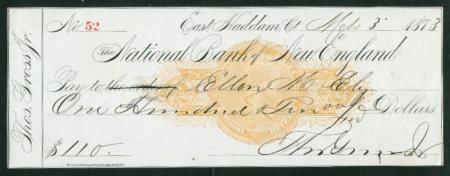 Thos. Gross Jr.
No 52 East Haddam, Ct. Feb 3 1873
The National Bank of New England
Pay to the order of Ellen M Ely
One Hundred & Ten 00/100 Dollars
$110.